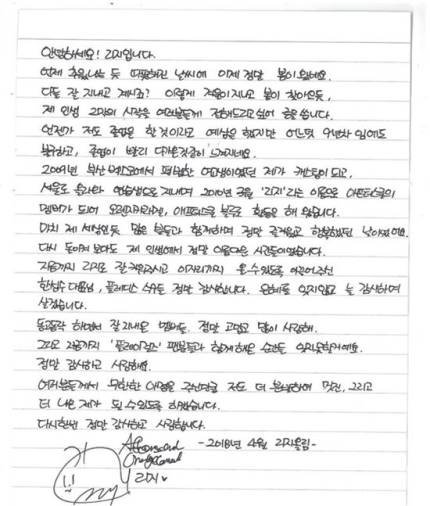 안녕하세요! 리지입니다.
언제 추웠냐는 듯 따뜻해진 날씨에 이제 정말 봄이 왔네요.
다들 잘 지내고 계시죠? 이렇게 겨울이 지나고 봄이 찾아오듯,
제 인생 2막의 시작을 여러분들께 전해드리고 싶어 글을 씁니다.
언젠가 저도 졸업을 할 것이라고 예상은 했지만 어느덧 9년차 임에도
불구하고, 졸업이 빨리 다가온것같이 느껴지네요.
2009년 부산 에서 평범한 여고생이었던 제가 캐스팅이 되고,
서울로 올라와 연습생으로 지내며 2010년 3월 '리지'라는 이름으로 애프터스쿨의
멤버가 되어 오렌지캬라멜, 애프터스쿨 활동을 해 왔습니다.
마치 제 세상인듯 많은 분들과 함께하며 정말 즐겁고 행복했던 날이었어요.
다시 돌이켜 보아도 제 인생에서 정말 아름다운 시간들이었습니다.
지금까지 리지로 잘 키워주시고 이자리까지 올 수 있도록 이끌어주신
한성수 대표님, 플레디스 식구들 정말 감사합니다. 은혜를 잊지않고 늘 감사하며
살겠습니다.
동고동락 하면서 잘 지내온 멤버들. 정말 고맙고 많이 사랑해.
그리고 지금까지 '플레이걸즈' 팬분들과 함께 해온 순간들 잊지못할거예요.
정말 감사하고 사랑해요.
여러분들께서 무한한 애정을 주신만큼 저도 더 분발하여 멋진, 그리고
더 나은 제가 될 수있도록 하겠습니다.
다시한번 정말 감사하고 사랑합니다.
-2018년 4월 리지올림-
Afterschool
Orange Caramel
리지♥